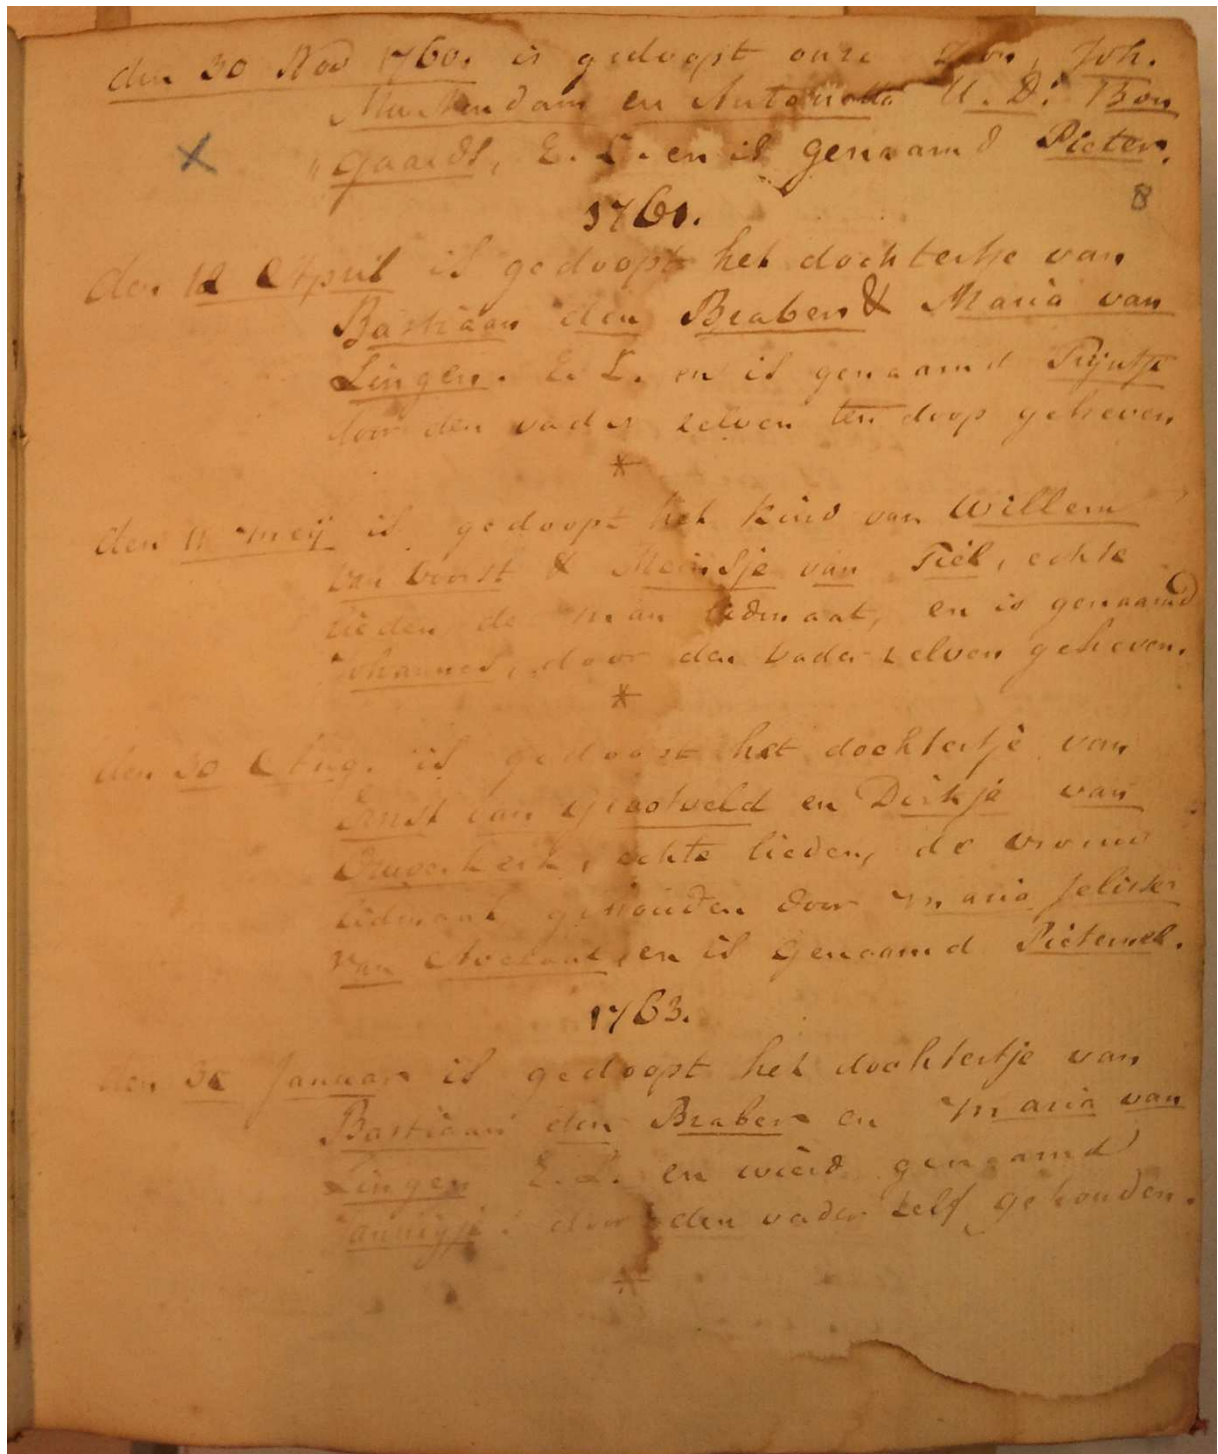 den 30 Nov 1760. is gedoopt onze Zoon, Joh.
en Antonetta U. D. Bon
"gaardt, E. L. en is genaamd Pieter.
8
1761.
den 12 April is gedoopt het dochtertje van
Bastiaan den Braber & Maria van
Lingen. E. L. en is genaamd Pijntje
door den vader zelven ten doop geheven
*
den 11 Meij is gedoopt het kind van Willem
van Voorst & Meinsje van Tiel, echte
lieden de man ledemaat, en is genaamd
Johannes, door den vader zelven geheven.
*
den 30 Aug. is gedoopt het dochtertje van
Ernst van Grootveld en Dirkje van
Ouwerkerk, echte lieden, de vrouw
lidmaat gehouden door Maria
van en is genaamd Pieternel.
1763.
den 30 Januar is gedoopt het dochtertje van
Bastiaan den Braber en Maria van
Lingen E. L. en wierd genaamd
door den vader zelf gehouden.
*